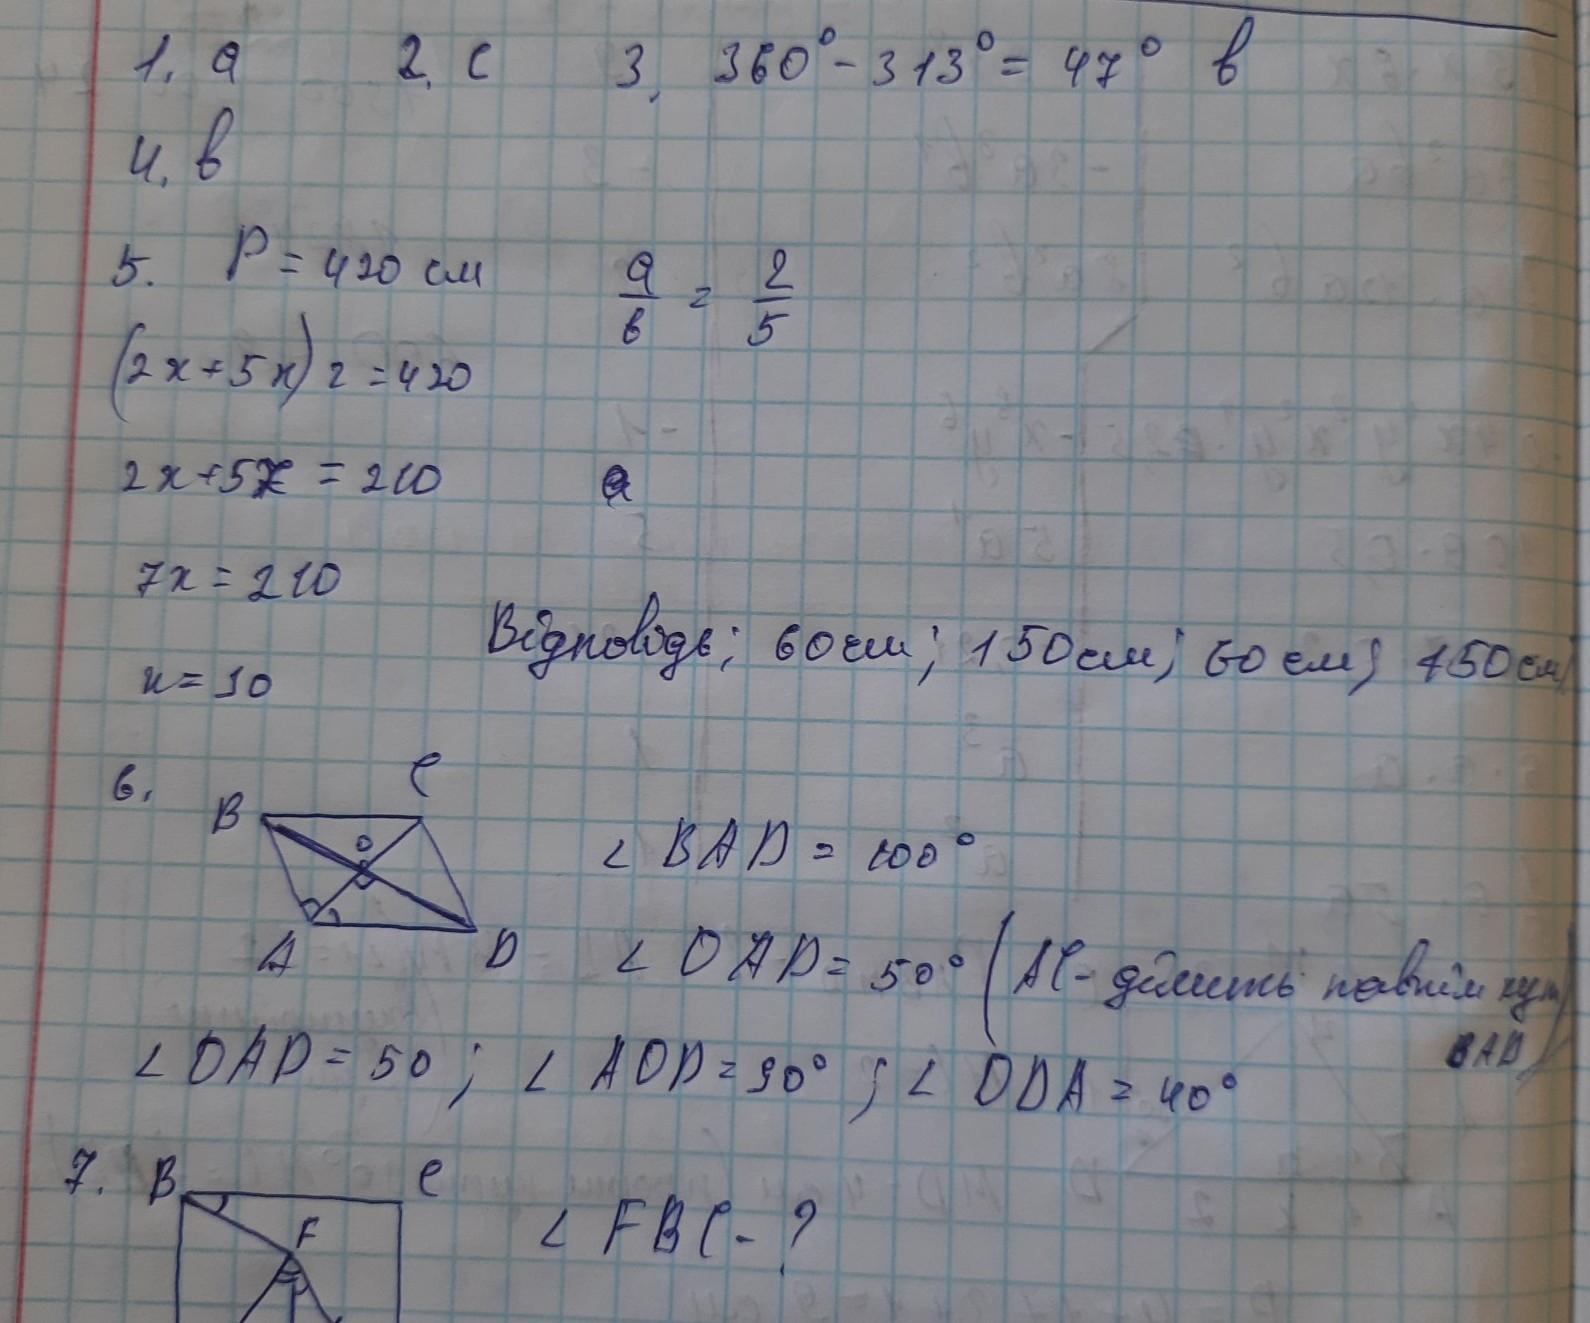 1. a 2. c 3. 360° - 313° = 47° в
4. в
5. P = 420 см a/в = 2/5
(2x+5x) 2 = 420
2x+5x = 210 a
7x = 210
Відповідь; 60 см; 150 см; 60 см; 150 см
x = 30
6. B C
O
∠ BAD = 100°
A D ∠ OAD = 50° (AC - ділить навпіл кут
BAD)
∠ OAD = 50 ; ∠ AOD = 90° ; ∠ ODA = 40°
7. B C
F ∠ FBC - ?